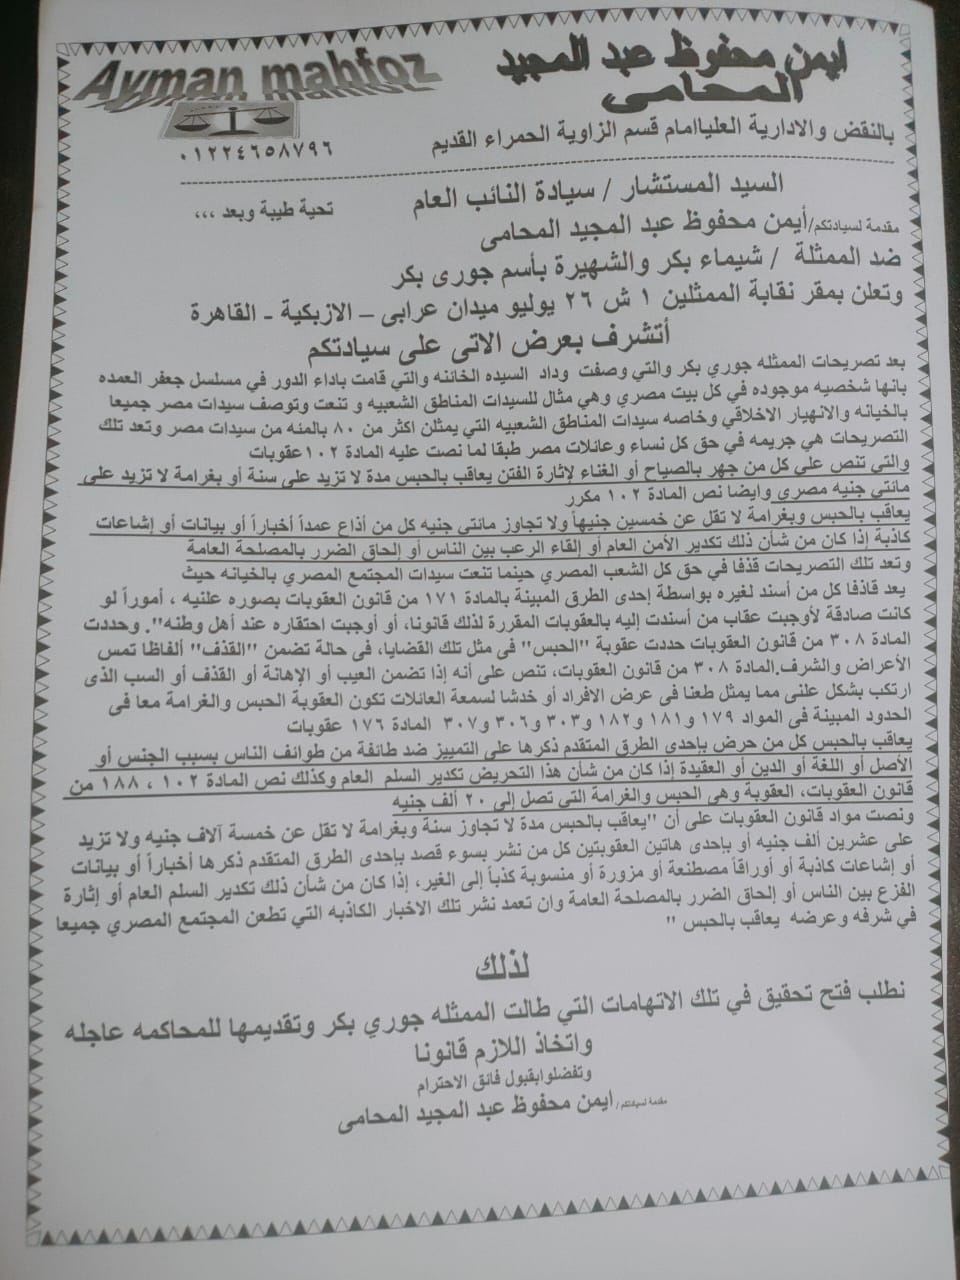 Ayman mahfoz
ايمن محفوظ عبد المجيد
المحامى
بالنقض والادارية العلياامام قسم الزاوية الحمراء القديم
٠١٢٢٤٦٥٨٧٩٦
السيد المستشار / سيادة النائب العام
تحية طيبة وبعد ،،،
مقدمة لسيادتكم/أيمن محفوظ عبد المجيد المحامى
ضد الممثلة / شيماء بكر والشهيرة بأسم جورى بكر
وتعلن بمقر نقابة الممثلين ١ ش ٢٦ يوليو ميدان عرابى – الازبكية - القاهرة
أتشرف بعرض الاتى على سيادتكم
بعد تصريحات الممثله جوري بكر والتي وصفت وداد السيده الخائنه والتي قامت باداء الدور في مسلسل جعفر العمده
بانها شخصيه موجوده في كل بيت مصري وهي مثال للسيدات المناطق الشعبيه و تنعت وتوصف سيدات مصر جميعا
بالخيانه والانهيار الاخلاقي وخاصه سيدات المناطق الشعبيه التي يمثلن اكثر من ٨٠ بالمئه من سيدات مصر وتعد تلك
التصريحات هي جريمه في حق كل نساء وعائلات مصر طبقا لما نصت عليه المادة ١٠٢عقوبات
والتي تنص على كل من جهر بالصياح أو الغناء لإثارة الفتن يعاقب بالحبس مدة لا تزيد على سنة أو بغرامة لا تزيد على
مائتي جنيه مصري وايضا نص المادة ١٠٢ مكرر
يعاقب بالحبس وبغرامة لا تقل عن خمسين جنيهاً ولا تجاوز مائتي جنيه كل من أذاع عمداً أخباراً أو بيانات أو إشاعات
كاذبة إذا كان من شأن ذلك تكدير الأمن العام أو إلقاء الرعب بين الناس أو إلحاق الضرر بالمصلحة العامة
وتعد تلك التصريحات قذفا في حق كل الشعب المصري حينما تنعت سيدات المجتمع المصري بالخيانه حيث
يعد قاذفا كل من أسند لغيره بواسطة إحدى الطرق المبينة بالمادة ١٧١ من قانون العقوبات بصوره علنيه ، أموراً لو
كانت صادقة لأوجبت عقاب من أسندت إليه بالعقوبات المقررة لذلك قانونا، أو أوجبت احتقاره عند أهل وطنه". وحددت
المادة ٣٠٨ من قانون العقوبات حددت عقوبة "الحبس" في مثل تلك القضايا، فى حالة تضمن "القذف" ألفاظا تمس
الأعراض والشرف.المادة ٣٠٨ من قانون العقوبات، تنص على أنه إذا تضمن العيب أو الإهانة أو القذف أو السب الذى
ارتكب بشكل علنى مما يمثل طعنا فى عرض الافراد أو خدشا لسمعة العائلات تكون العقوبة الحبس والغرامة معا فى
الحدود المبينة فى المواد ١٧٩ و١٨١ و١٨٢ و٣٠٣ و٣٠٦ و٣٠٧ المادة ١٧٦ عقوبات
يعاقب بالحبس كل من حرض بإحدى الطرق المتقدم ذكرها على التمييز ضد طائفة من طوائف الناس بسبب الجنس أو
الأصل أو اللغة أو الدين أو العقيدة إذا كان من شأن هذا التحريض تكدير السلم العام وكذلك نص المادة ١٠٢ ، ١٨٨ من
قانون العقوبات، العقوبة وهى الحبس والغرامة التى تصل إلى ٢٠ ألف جنيه
ونصت مواد قانون العقوبات على أن "يعاقب بالحبس مدة لا تجاوز سنة وبغرامة لا تقل عن خمسة آلاف جنيه ولا تزيد
على عشرين ألف جنيه أو بإحدى هاتين العقوبتين كل من نشر بسوء قصد بإحدى الطرق المتقدم ذكرها أخباراً أو بيانات
أو إشاعات كاذبة أو أوراقاً مصطنعة أو مزورة أو منسوبة كذباً إلى الغير، إذا كان من شأن ذلك تكدير السلم العام أو إثارة
الفزع بين الناس أو إلحاق الضرر بالمصلحة العامة وان تعمد نشر تلك الاخبار الكاذبه التي تطعن المجتمع المصري جميعا
في شرفه وعرضه يعاقب بالحبس "
لذلك
نطلب فتح تحقيق في تلك الاتهامات التي طالت الممثله جوري بكر وتقديمها للمحاكمه عاجله
واتخاذ اللازم قانونا
وتفضلوابقبول فائق الاحترام
مقدمة لسيادتكم / ايمن محفوظ عبد المجيد المحامى